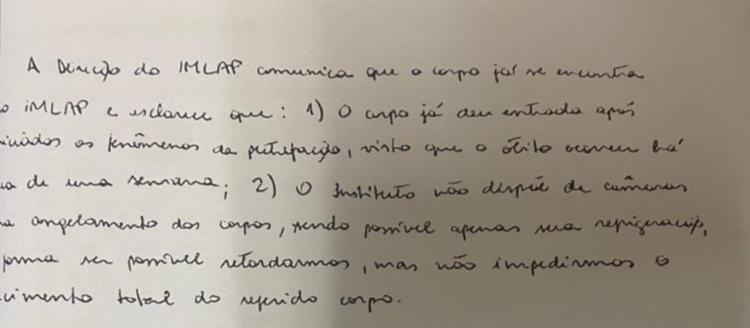 A Direção do IMLAP comunica que o corpo já se encontra
o IMLAP e esclarece que: 1) O corpo já deu entrada após
iniciados os fenômenos da putrefação, visto que o óbito ocorreu há
de uma semana; 2) O Instituto não dispõe de câmeras
congelamento dos corpos, sendo possível apenas sua refrigeração,
forma ser possível retardarmos, mas não impedirmos o
cimento total do referido corpo.